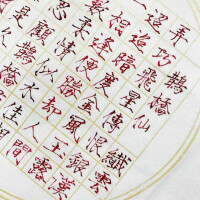 鵲橋仙
纖雲
弄巧飛星傳恨銀漢
迢迢暗度金風玉露
一相逢便勝卻人間
數柔情似水佳
忍顧鵲橋
是